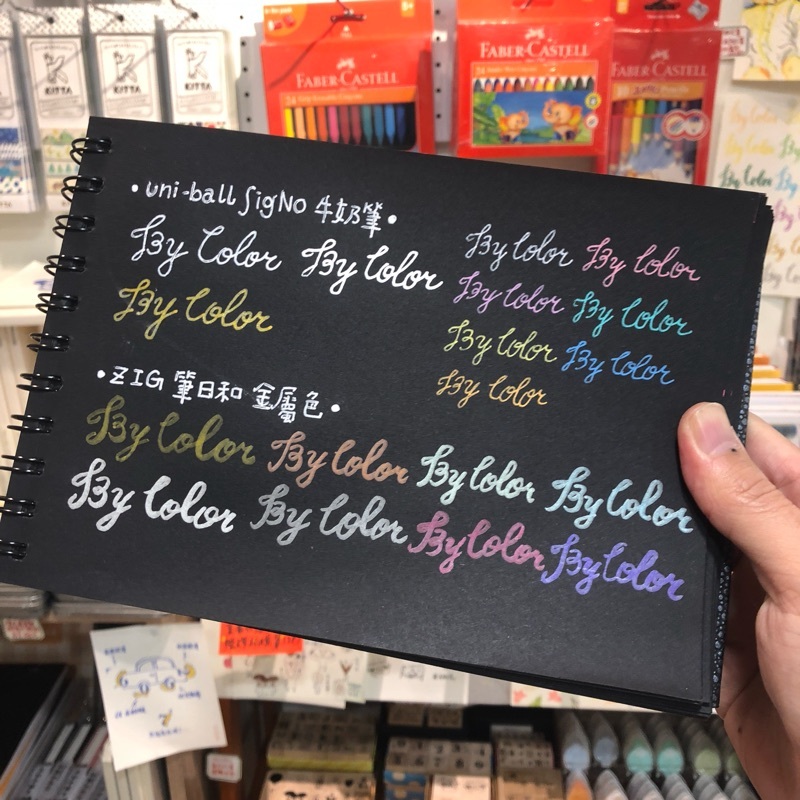 KITTA
KITTA
KITTA
FABER-CASTELL
FABER-CASTELL
FABER-CASTELL
• uni-ball SigNo 牛奶筆 •
By Color By Color
By Color
By Color By Color
By Color By Color
By Color By Color
By Color
• ZIG 筆日和 金屬色 •
By Color By Color By Color By Color
By Color By Color By Color By Color